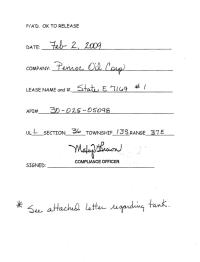 P/A'D. OK TO RELEASE
DATE: Feb 2, 2009
COMPANY: Penroc Oil Corp
LEASE NAME and #: State E 7169 #1
API# 30-025-05098
UL L SECTION 36 TOWNSHIP 13S RANGE 37E
COMPLIANCE OFFICER
SIGNED:
* See attached letter regarding tank.